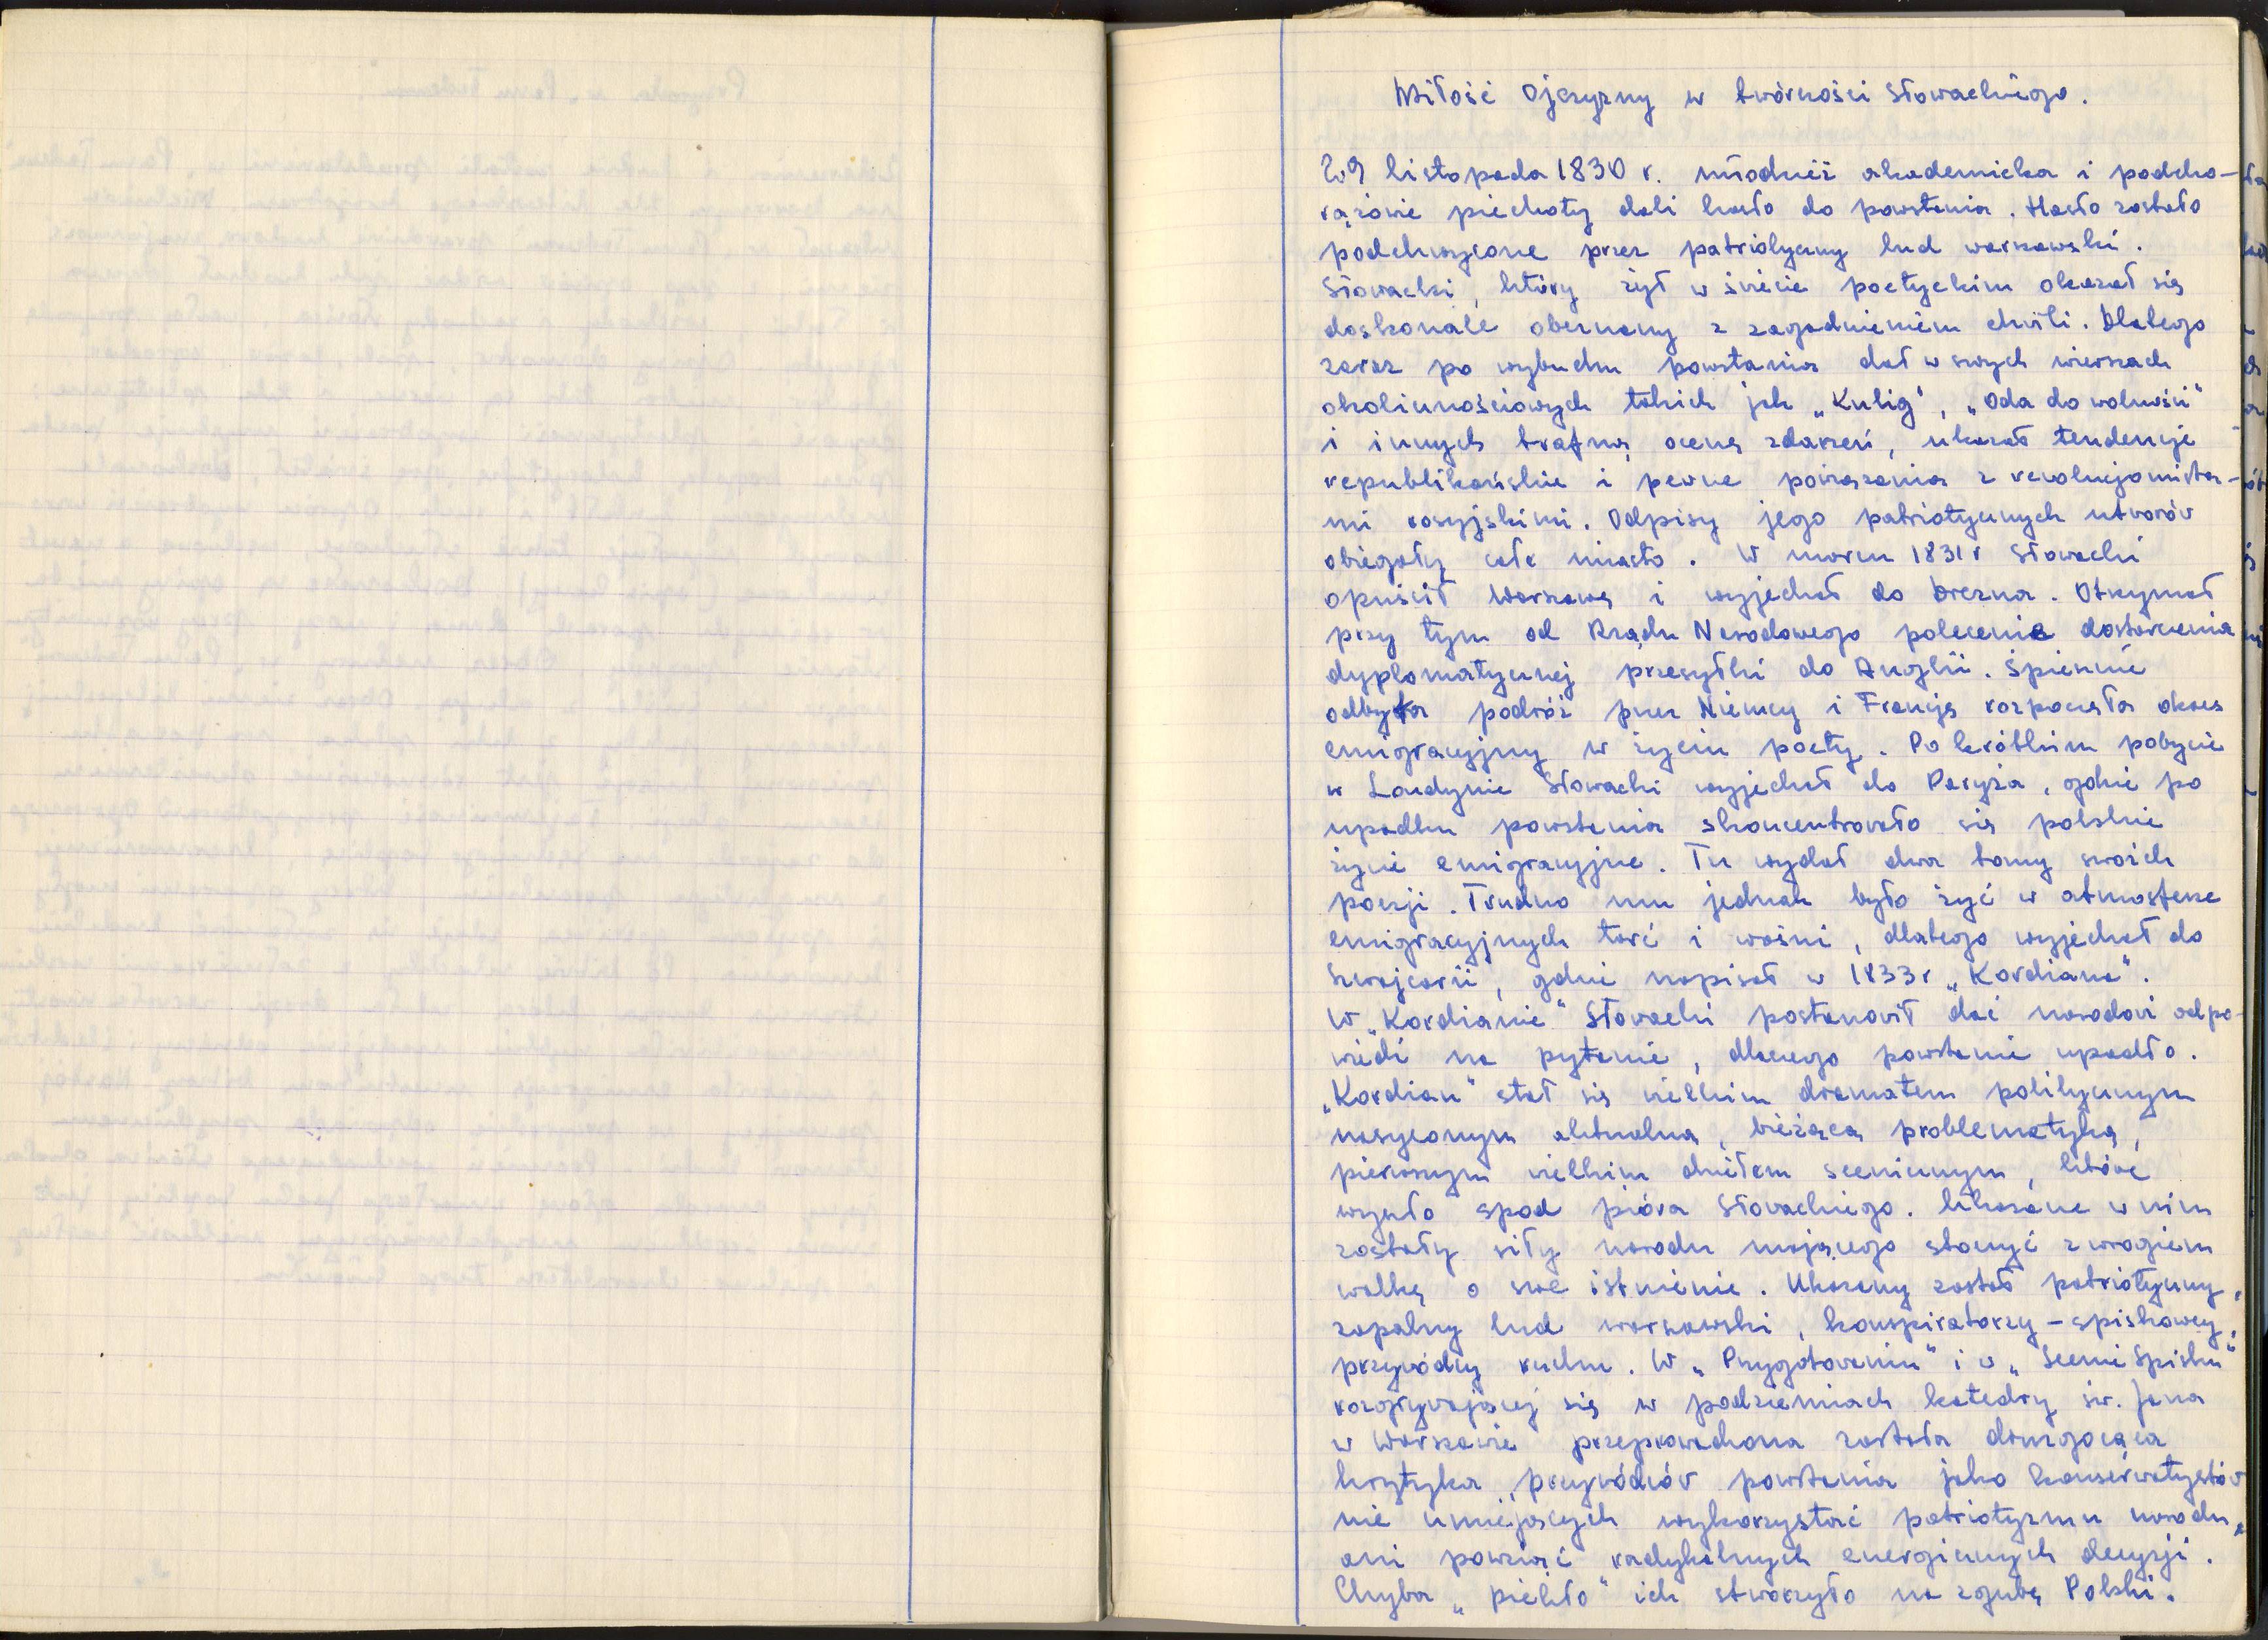 Miłość Ojczyzny w twórczości Słowackiego.
29 listopada 1830 r. młodzież akademicka i podcho-
rążowie piechoty dali hasło do powstania. Hasło zostało
podchwycone przez patriotyczny lud warszawski.
Słowacki, który żył w świecie poetyckim okazał się
doskonale obeznany z zagadnieniem chwili. Dlatego
zaraz po wybuchu powstania dał w swych wierszach
okolicznościowych takich jak „Kulig", „Oda do wolności"
i innych trafną ocenę zdarzeń, ukazał tendencje
republikańskie i pewne powiązania z rewolucjonista-
mi rosyjskimi. Odpisy jego patriotycznych utworów
obiegały całe miasto. W marcu 1831 r Słowacki
opuścił Warszawę i wyjechał do Drezna. Otrzymał
przy tym od Rządu Narodowego polecenie dostarczenia
dyplomatycznej przesyłki do Anglii. Śpiesznie
odbyta podróż przez Niemcy i Francję rozpoczęła okres
emigracyjny w życiu poety. Po krótkim pobycie
w Londynie Słowacki wyjechał do Paryża, gdzie po
upadku powstania skoncentrowało się polskie
życie emigracyjne. Tu wydał dwa tomy swoich
poezji. Trudno mu jednak było żyć w atmosferze
emigracyjnych tarć i waśni, dlatego wyjechał do
Szwajcarii, gdzie napisał w 1833 r „Kordiana".
W „Kordianie" Słowacki postanowił dać narodowi odpo-
wiedź na pytanie, dlaczego powstanie upadło.
„Kordian" stał się wielkim dramatem politycznym
nasyconym aktualną, bieżącą problematyką,
pierwszym wielkim dziełem scenicznym, które
wyszło spod pióra Słowackiego. Ukazane w nim
zostały siły narodu mającego stoczyć z wrogiem
walkę o swe istnienie. Ukazany został patriotyczny,
zapalny lud warszawski, konspiratorzy – spiskowcy,
przywódcy ruchu. W „Przygotowaniu" i w „Scenie Spisku"
rozgrywającej się w podziemiach katedry św. Jana
w Warszawie przeprowadzona została druzgocąca
krytyka przywódców powstania jako konserwatystów
nie umiejących wykorzystać patriotyzmu narodu,
ani powziąć radykalnych energicznych decyzji.
Chyba „piekło" ich stworzyło na zgubę Polski.